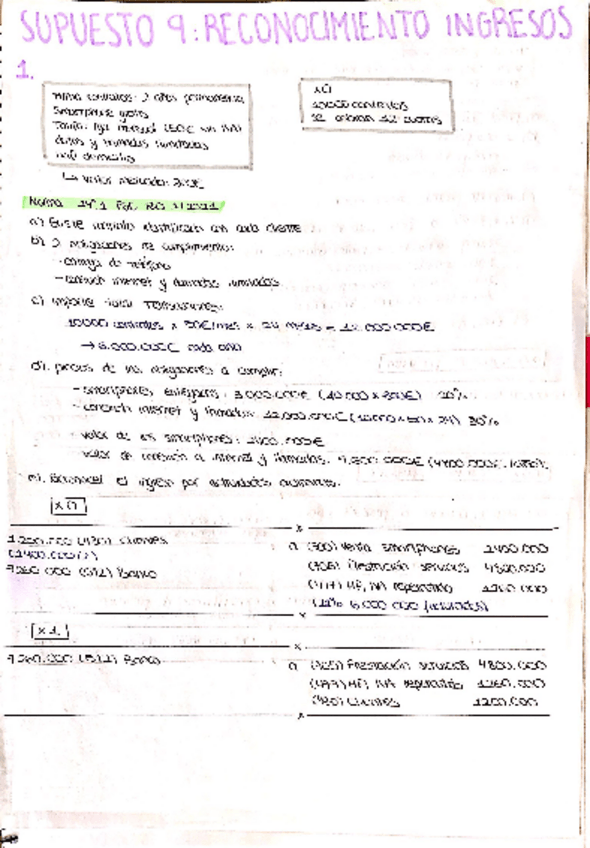 SUPUESTO 9: RECONOCIMIENTO INGRESOS
1.
Firma contratos: 2 años permanencia
Smartphone gratis
Tarifa fija mensual (50€ sin IVA)
datos y llamadas ilimitadas
10000 contratos
valor mercado: 300€
Norma 14ª.1 PGC RD 1/2021
a) Existe contrato identificado con cada cliente
b) 2 obligaciones de cumplimiento:
- entrega de teléfono
- conexión internet y llamadas ilimitadas
c) importe total transacciones:
10000 contratos x 50€/mes x 24 meses = 12.000.000€
→ 6.000.000€ cada año
d) precios de las obligaciones a cumplir:
- smartphones entregados: 3.000.000€ (10.000 x 300€) 20%
- conexión internet y llamadas: 12.000.000€ (10000 x 50 x 24) 80%
- valor de los smartphones: 2400.000€
- valor de conexión a internet y llamadas: 9.600.000€
e) Reconocer el ingreso por actividades ordinarias.
x0
1.200.000 (430) Clientes
(2400.000/2)
7260.000 (572) Banco
a (700) Venta smartphones 2400.000
(705) Prestación servicios 4800.000
(477) HP, IVA repercutido 1260.000
(21% 6.000.000
x1
7260.000 (572) Banco
a (705) Prestación servicios 4800.000
(477) HP, IVA repercutido 1260.000
(430) Clientes 1200.000